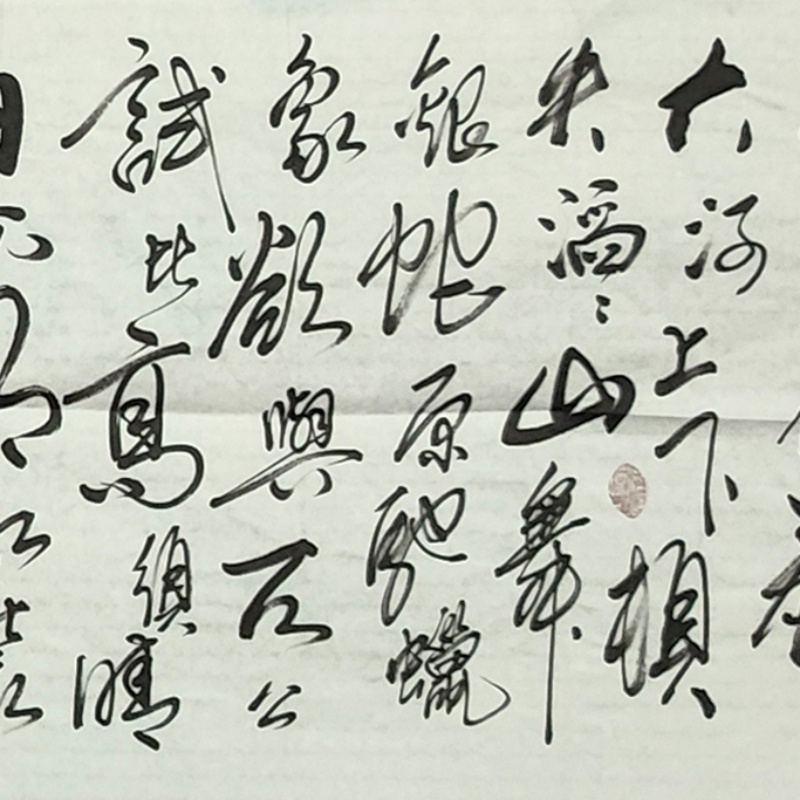 大河上下頓
失滔〻山舞
銀蛇原馳蠟
象欲與天公
試比高須晴
日